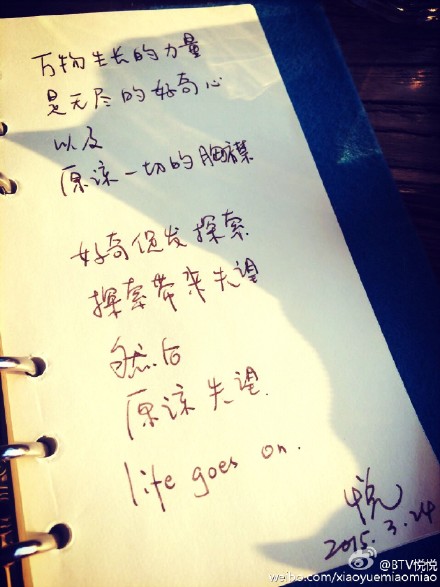 万物生长的力量
是无尽的好奇心
以及
原谅一切的胸襟
好奇促发探索
探索带来失望
然后
原谅失望.
life goes on.
悦
2015.3.24
@BTV悦悦
weibo.com/xiaoyuemiaomiao